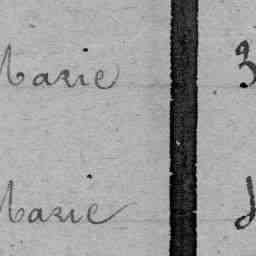 Marie 3
Marie